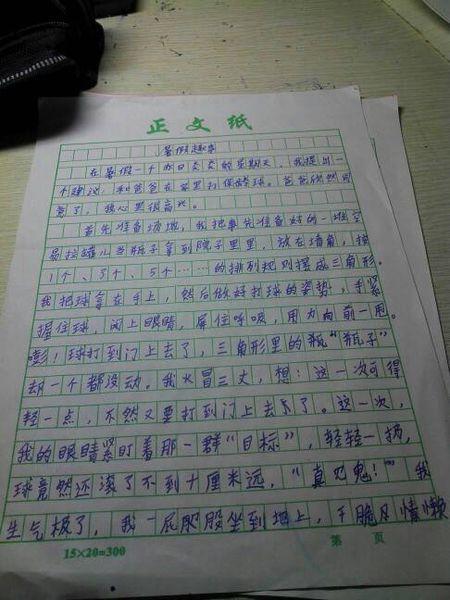 正文纸
暑假趣事
在暑假一个炎日炎炎的星期天，我提出一
个建议：和爸爸在家里打保龄球。爸爸欣然同
意了，我心里很高兴。
首先准备场地，我把事先准备好的一堆空
易拉罐儿当瓶子拿到院子里里，放在墙角，按
1个、3个、5个……的排列规则摆成三角形。
我把球拿在手上，然后做好打球的姿势，手紧
握住球，闭上眼睛，屏住呼吸，用力向前一甩。
嘭！球打到门上去了，三角形里的瓶“瓶子”
却一个都没动。我火冒三丈，想：这一次可得
轻一点，不然又要打到门上去了。这一次，
我的眼睛紧盯着那一群“目标”，轻轻一扔，
球竟然还滚了不到十厘米远，“真见鬼！”我
生气极了，我一屁股坐到地上，干脆
懒
15×20=300
第 页